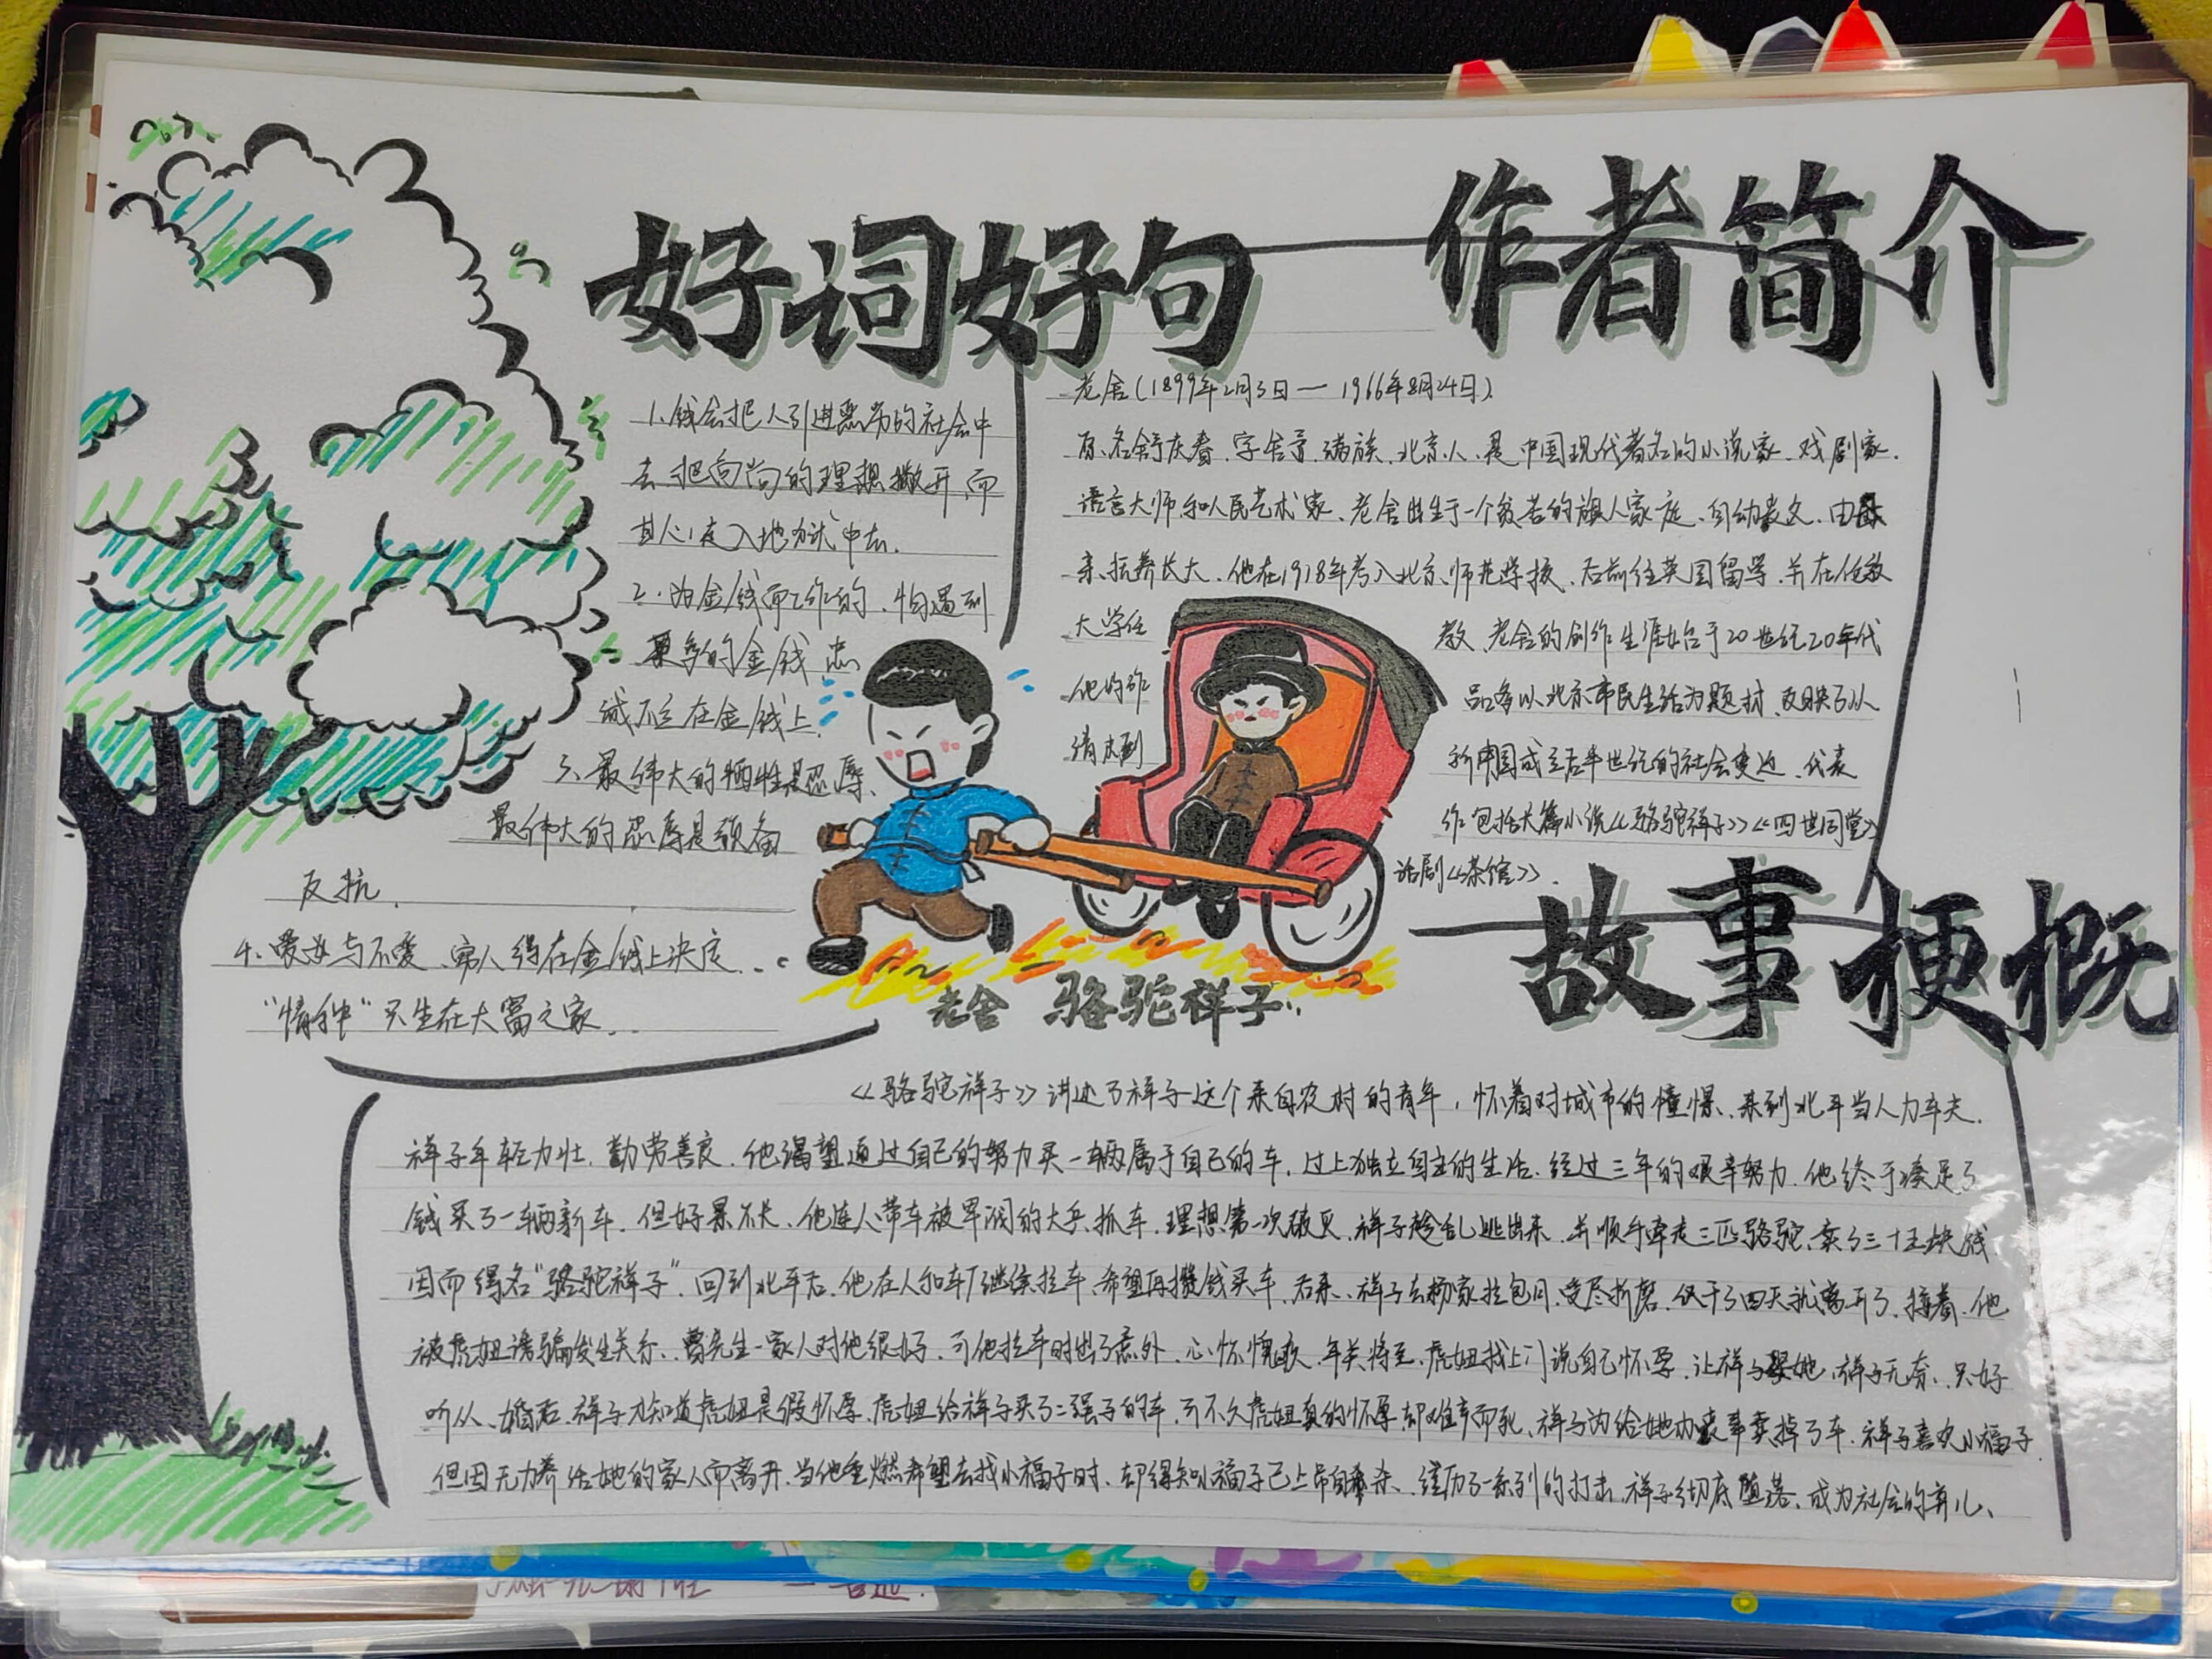 好词好句
1.钱会把人引进恶劣的社会中
去把高尚的理想撇开,而
甘心走入地狱中去.
2.为金钱而工作的,怕遇到
更多的金钱,忠
诚不立在金钱上.
3.最伟大的牺牲是忍辱,
最伟大的忍辱是预备
反抗.
4.爱与不爱,穷人得在金钱上决定
“情种”只生在大富之家
作者简介
老舍(1899年2月3日—1966年8月24日)
原名舒庆春,字舍予,满族,北京人,是中国现代著名的小说家,戏剧家,
语言大师和人民艺术家,老舍出生于一个贫苦的旗人家庭,自幼丧父,由母
亲抚养长大,他在1918年考入北京师范学校,后前往英国留学,并在伦敦
大学任教,老舍的创作生涯始于20世纪20年代
他的作品多以北京市民生活为题材,反映了从
清末到新中国成立后半世纪的社会变迁,代表
作包括长篇小说《骆驼祥子》《四世同堂》
话剧《茶馆》.
老舍 骆驼祥子
故事梗概
《骆驼祥子》讲述了祥子这个来自农村的青年,怀着对城市的憧憬,来到北平当人力车夫.
祥子年轻力壮,勤劳善良,他渴望通过自己的努力买一辆属于自己的车,过上独立自主的生活.经过三年的艰辛努力,他终于凑足了
钱买了一辆新车,但好景不长,他连人带车被军阀的大兵抓车,理想第一次破灭,祥子趁乱逃出来,并顺手牵走三匹骆驼,卖了三十五块钱
因而得名“骆驼祥子”,回到北平后,他在人和车厂继续拉车,希望再攒钱买车,后来,祥子去杨家拉包月,受尽折磨,仅干了四天就离开了,接着,他
被虎妞诱骗发生关系,曹先生一家人对他很好,可他拉车时出了意外,心怀愧歉,年关将至,虎妞找上门说自己怀孕,让祥子娶她,祥子无奈,只好
听从,婚后,祥子才知道虎妞是假怀孕,虎妞给祥子买了二强子的车,可不久虎妞真的怀孕,却难产而死,祥子为给她办丧事卖掉了车,祥子喜欢小福子
但因无力养活她的家人而离开,当他重燃希望去找小福子时,却得知小福子已上吊自杀,经历了一系列的打击,祥子彻底堕落,成为社会的弃儿,